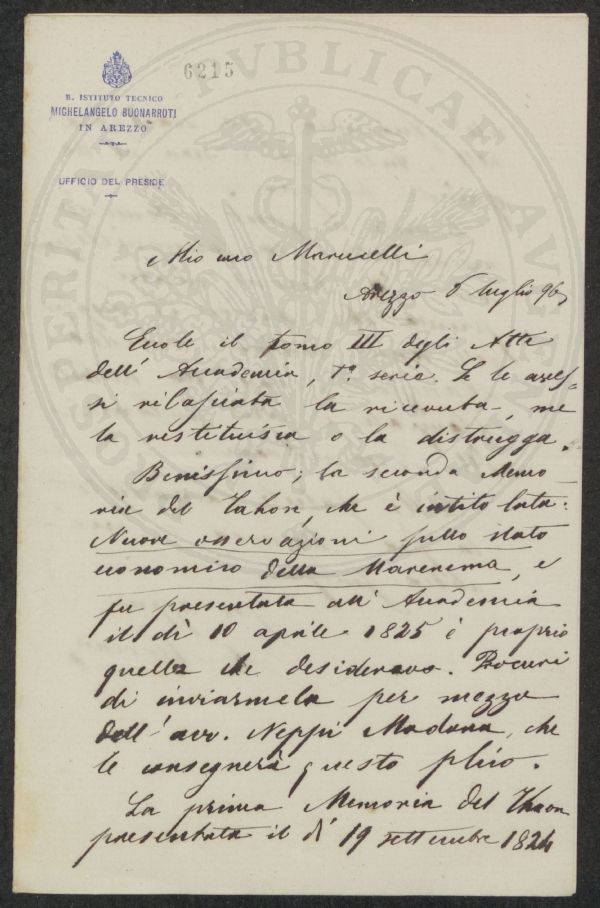 6215
R. ISTITUTO TECNICO
MICHELANGELO BUONARROTI
IN AREZZO
UFFICIO DEL PRESIDE
PROSPERITATI PVBLICAE AVGENDAE
Mio caro Marucelli
Arezzo 6 luglio 96
Eccole il tomo III degli Atti
dell' Accademia, 1ª serie. Se le aves=
si rilasciata la ricevuta, me
la restituisca o la distrugga.
Benissimo; la seconda Memo-
ria del Tahon, che è intitolata:
Nuove osservazioni sullo stato
economico della Maremma, e
fu presentata all' Accademia
il dì 10 aprile 1825 è proprio
quella che desideravo. Procuri
di inviarmela per mezzo
dell' avv. Neppi Modona, che
le consegnerà questo plico.
La prima Memoria del Thaon
presentata il dì 19 settembre 1824